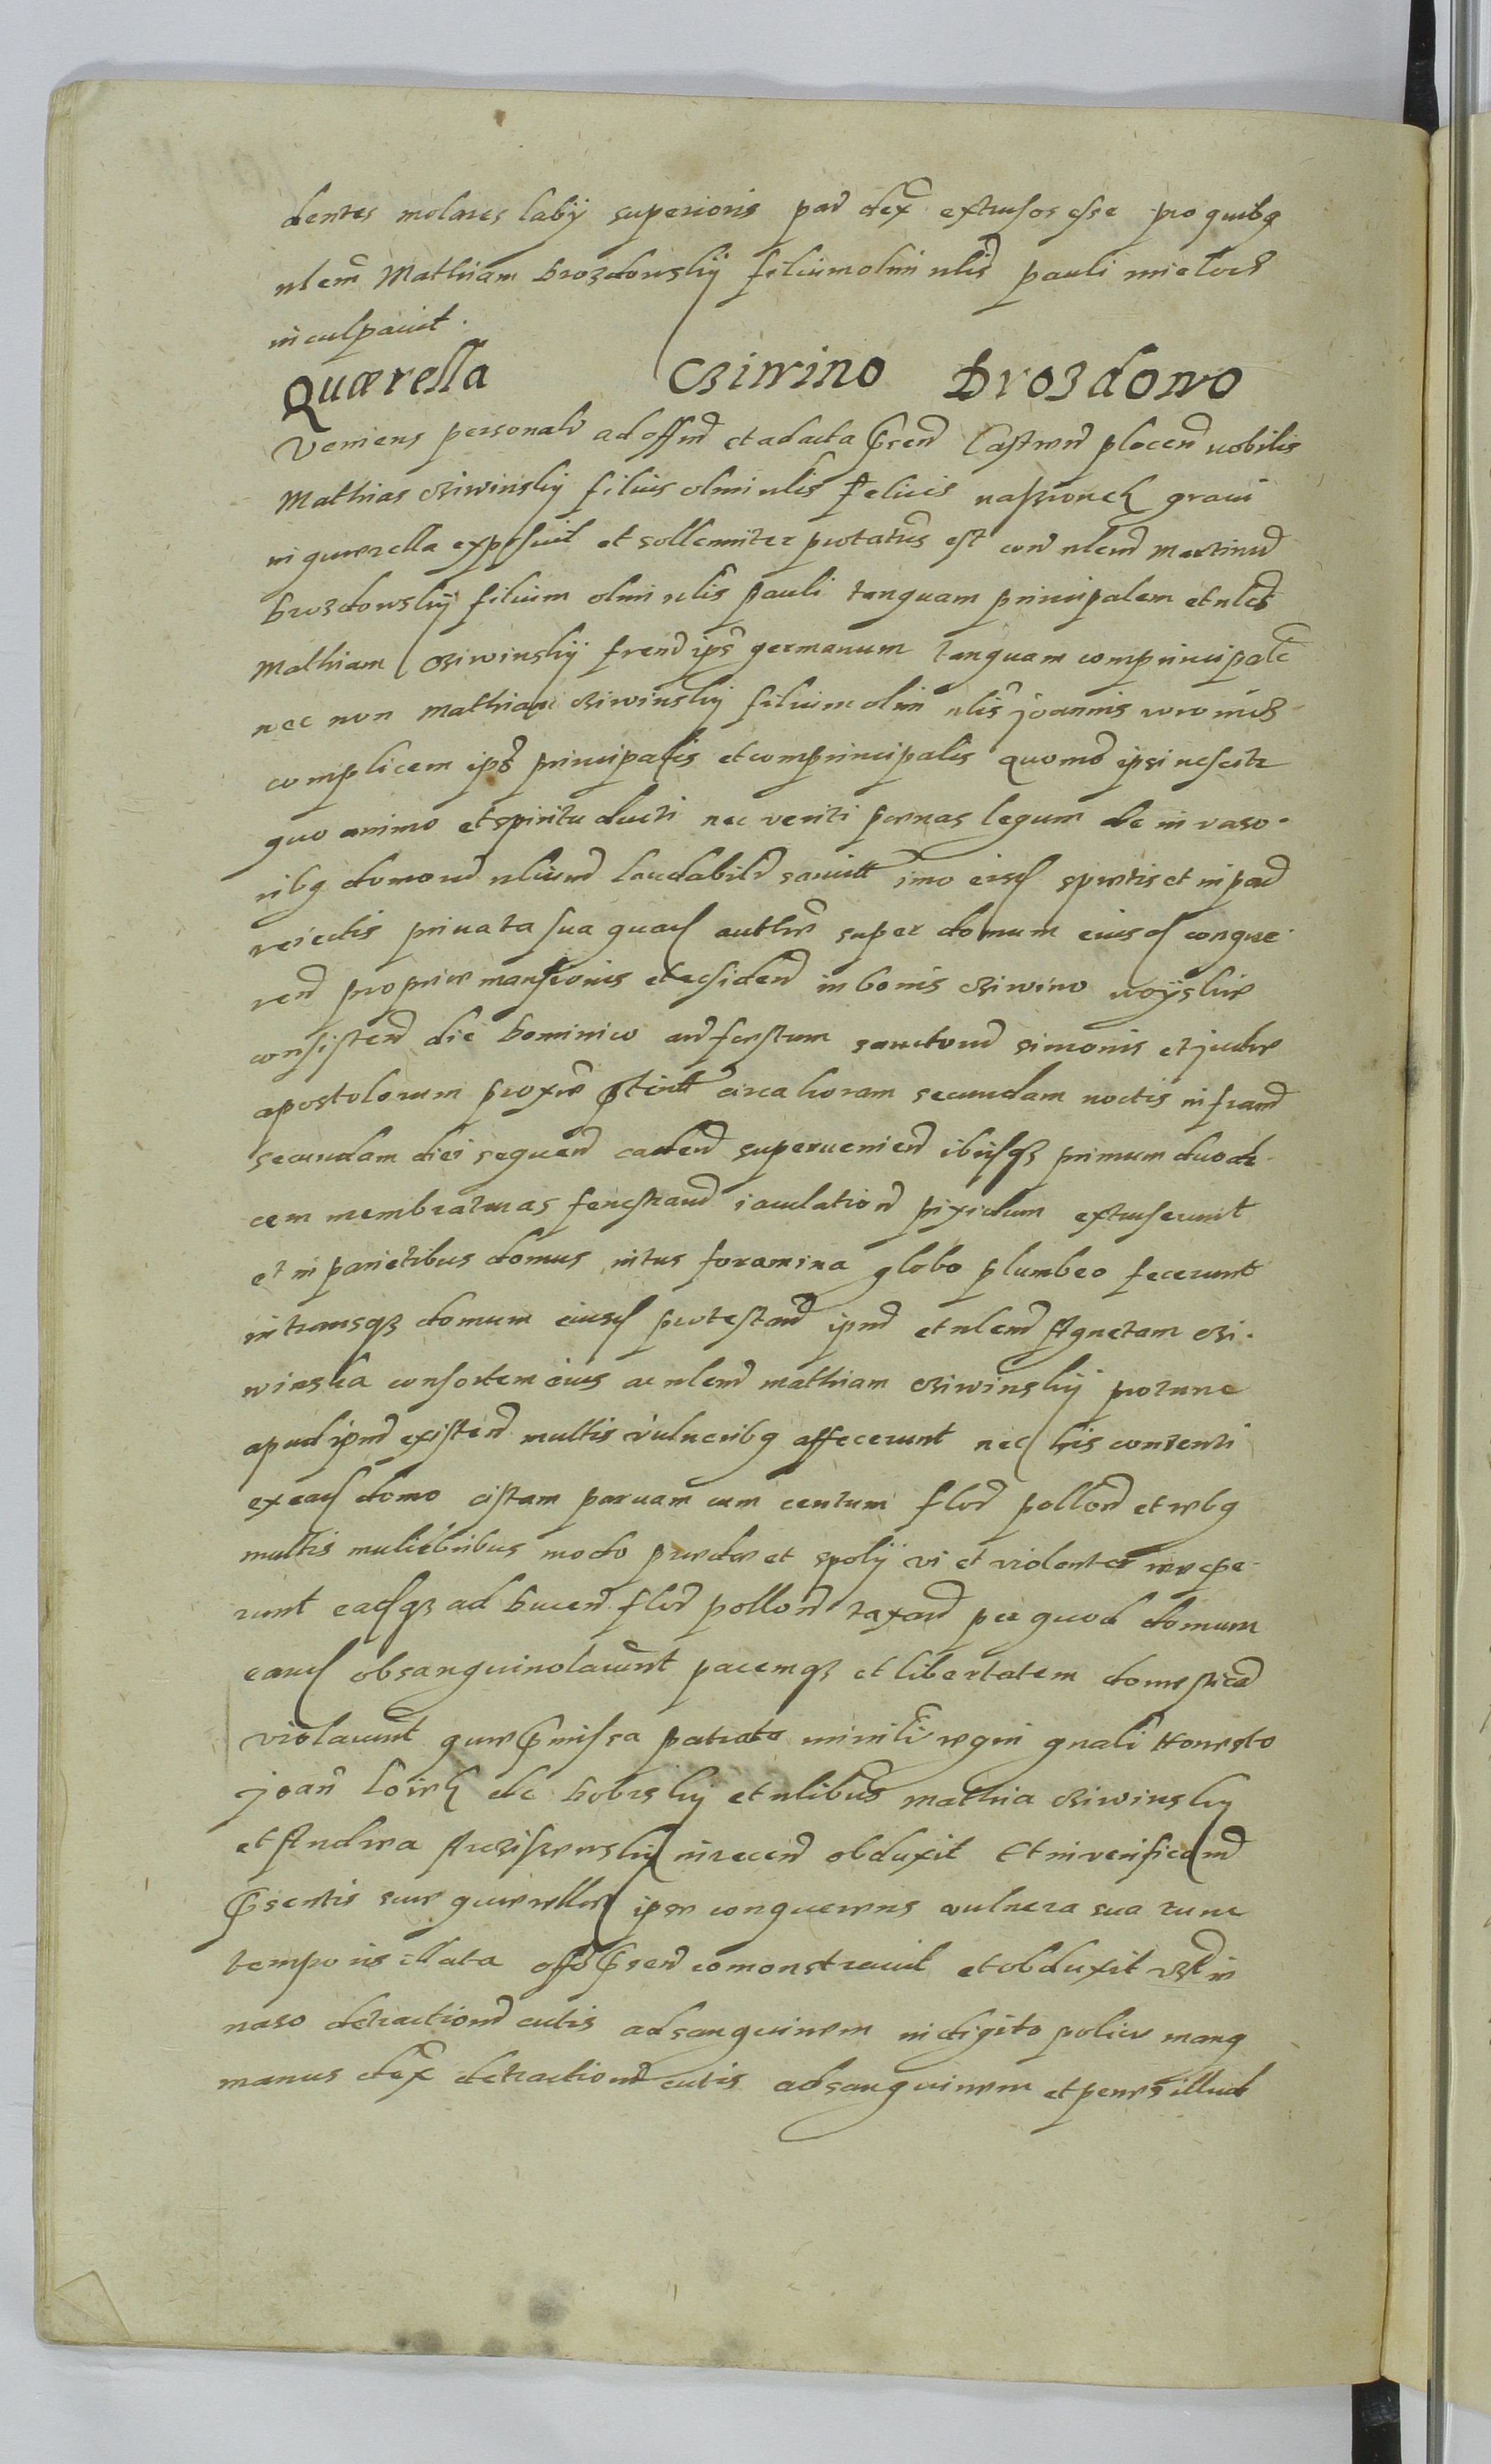 dentes molares labij superioris par dex extrusos esse pro quibq
nlem Mathiam Brozdowskij filium olim nlis pauli mielock
inculpavit.
Quærella Oziwino Drozdowo
Veniens personalr ad offm et ad acta pren Castren plocen nobilis
Mathias oziwinskij filius olim nlis Felicis nassionek gravi
in quærella exposuit et sollenniter protatus est con nlem Martinu
brozdowskij filium olim nlis Pauli tanquam principalem et nlem
Mathiam oziwinskij fren ips germanum tanquam comprincipale
nec non Mathiam oziwinskij filium olim nlis joannis
complicem ips principalis et comprincipalis Quomo ipsi nescitr
quo animo et spiritu ducti nec veriti pœnas legum de invaso-
ribq domoru nlium laudabilr sancitt imo eisd spretis et in par
reiectis privata sua quad authre super domum eiusd conque-
ren propriæ mansionis et residen in bonis oziwino
consisten die Dominico an festum sanctoru simonis et judæ
apostolorum proxie ptirtt circa horam secundam noctis in fram
secundam diei sequen caden supervenien ibidsqz primum duode-
cem membraturas fenestraru iaculation pixidum extruserunt
et in parietibus domus intus foramina globo plumbeo fecerunt
intransqz domum eiusd protestan ipm et nlem Agnetam ozi-
winska consortem eius ac nlem mathiam oziwinskij pro tunc
apud ipm existen multis vulneribq affecerunt nec his contenti
ex ead domo cistam parvam cum centum flor pollon et rebq
multis muliebribus modo prædæ et spolij vi et violenter recepe-
runt easqz ad Ducen flor pollon taxan per quod domum
eand obsanguinolavunt pacemqz et libertatem domestica
violavunt quæ pmissa patrata minili regni gnali Honesto
joan de bobrskij et nlibus mathia oziwinskij
et Andrea in recen obduxit Et in verificaom
psentis suæ quærellæ ipse conquerens vulnera sua tunc
temporis illata offo psen comonstravit et obduxit vzt in
naso detractionem cutis ad sanguinem in digito police manq
manus dex detractionem cutis ad sanguinem et penes illud